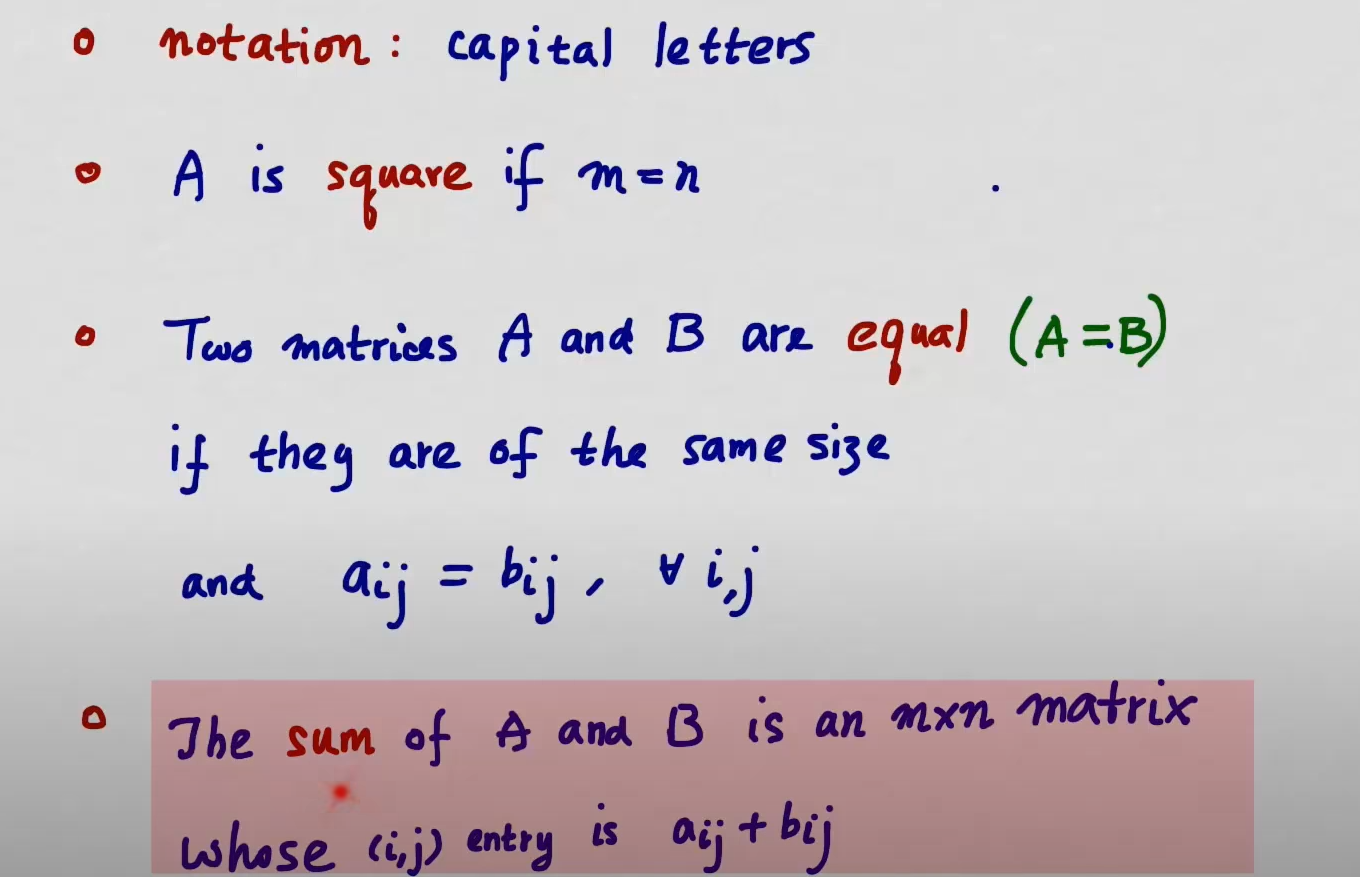 notation: capital letters
A is square if m=n
Two matrices A and B are equal (A=B)
if they are of the same size
and aij = bij, ∀ i,j
The sum of A and B is an mxn matrix
whose (i,j) entry is aij + bij